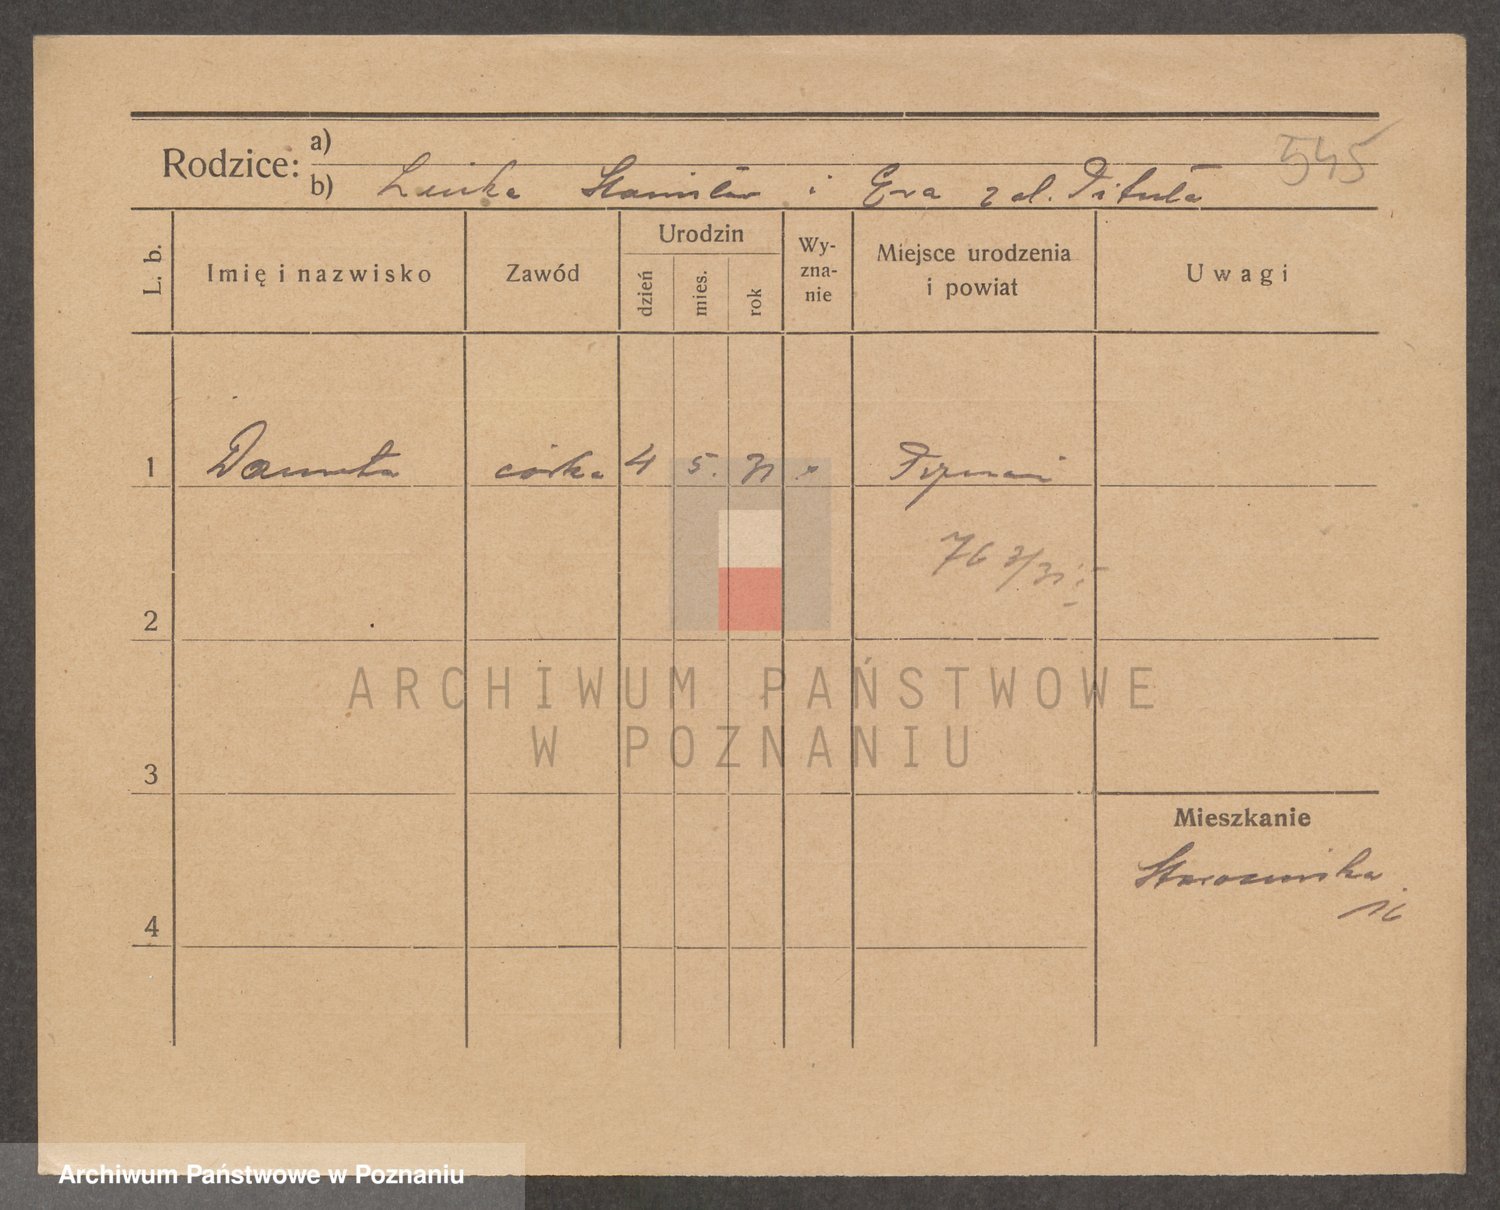 545
Rodzice: a)
b) Stanisław i Ewa z d. Pituła
L. b.
Imię i nazwisko
Zawód
Urodzin
dzień
mies.
rok
Wy-
zna-
nie
Miejsce urodzenia
i powiat
Uwagi
1 Danuta córka 4 5. 31 Poznań
2
3
4
Mieszkanie
16
ARCHIWUM PAŃSTWOWE
W POZNANIU
Archiwum Państwowe w Poznaniu